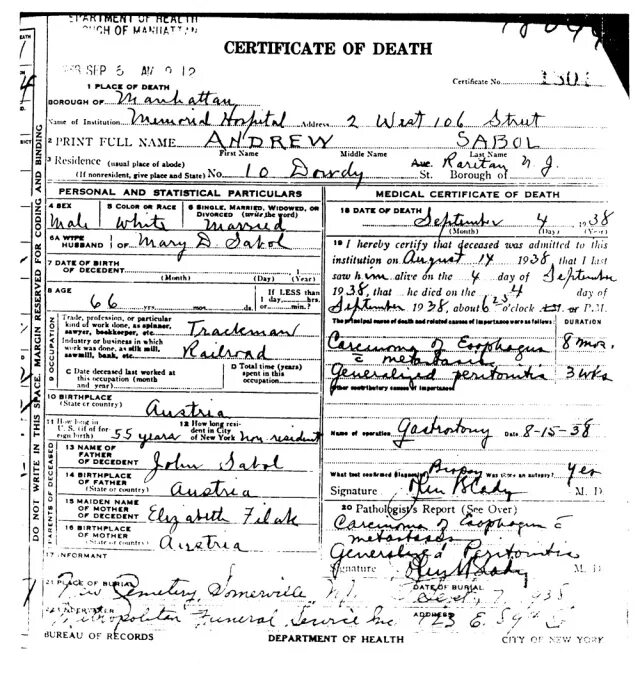 DEPARTMENT OF HEALTH
BOROUGH OF MANHATTAN
CERTIFICATE OF DEATH
SEP 6 AM 9 12
1 PLACE OF DEATH
Certificate No.
BOROUGH OF Manhattan
Name of Institution Memorial Hospital Address 2 West 106 Street
2 PRINT FULL NAME ANDREW SABOL
First Name Middle Name Last Name
3 Residence (usual place of abode) No. 10 Dowdy Ave. Raritan N.J.
(If nonresident, give place and State) St. Borough of
PERSONAL AND STATISTICAL PARTICULARS
4 SEX Male
5 COLOR OR RACE White
6 SINGLE, MARRIED, WIDOWED, OR DIVORCED (write the word) Married
6A WIFE HUSBAND } OF Mary D. Sabol
7 DATE OF BIRTH OF DECEDENT
(Month) (Day) (Year)
8 AGE 66 yrs. mos. ds.
If LESS than 1 day, hrs. or min.
9 OCCUPATION
Trade, profession, or particular kind of work done, as spinner, sawyer, bookkeeper, etc. Trackman
Industry or business in which work was done, as silk mill, sawmill, bank, etc. Railroad
C Date deceased last worked at this occupation (month and year)
D Total time (years) spent in this occupation
10 BIRTHPLACE (State or country) Austria
11 How long in U. S. (if of foreign birth) 55 years
12 How long resident in City of New York Non resident
PARENTS OF DECEASED
13 NAME OF FATHER OF DECEDENT John Sabol
14 BIRTHPLACE OF FATHER (State or country) Austria
15 MAIDEN NAME OF MOTHER OF DECEDENT Elizabeth Filak
16 BIRTHPLACE OF MOTHER (State or country) Austria
17 INFORMANT
MEDICAL CERTIFICATE OF DEATH
18 DATE OF DEATH September 4 1938
(Month) (Day) (Year)
19 I hereby certify that deceased was admitted to this
institution on August 14 1938, that I last
saw him alive on the 4 day of September
1938, that he died on the 4 day of
September 1938, about 6 o'clock A.M. or P.M.
The principal causes of death and related causes of importance were as follows: DURATION
Carcinoma of Esophagus 8 mos.
c̄ metastasis
Generalized peritonitis 3 wks
Other contributory causes of importance
Name of operation Gastrostomy Date 8-15-38
What test confirmed diagnosis Biopsy Was there an autopsy? Yes
Signature M. D.
20 Pathologist's Report (See Over)
Carcinoma of Esophagus c̄
metastases
Generalized Peritonitis
Signature M. D.
21 PLACE OF BURIAL New Cemetery, Somerville, N.J.
DATE OF BURIAL 7 1938
UNDERTAKER Metropolitan Funeral Service Inc
ADDRESS 723 E.
BUREAU OF RECORDS DEPARTMENT OF HEALTH CITY OF NEW YORK
DO NOT WRITE IN THIS SPACE. MARGIN RESERVED FOR CODING AND BINDING